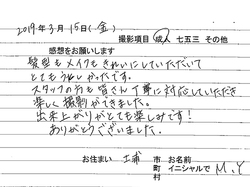 2019年3月15日(金)
撮影項目 成人 七五三 その他
感想をお願いします
髪型もメイクもきれいにしていただいて
とてもうれしかったです。
スタッフの方も皆さん丁寧に対応していただき
楽しく撮影ができました。
出来上がりがとても楽しみです!
ありがとうございました。
お住まい 土浦 市 町 村 お名前 イニシャルで M.Y